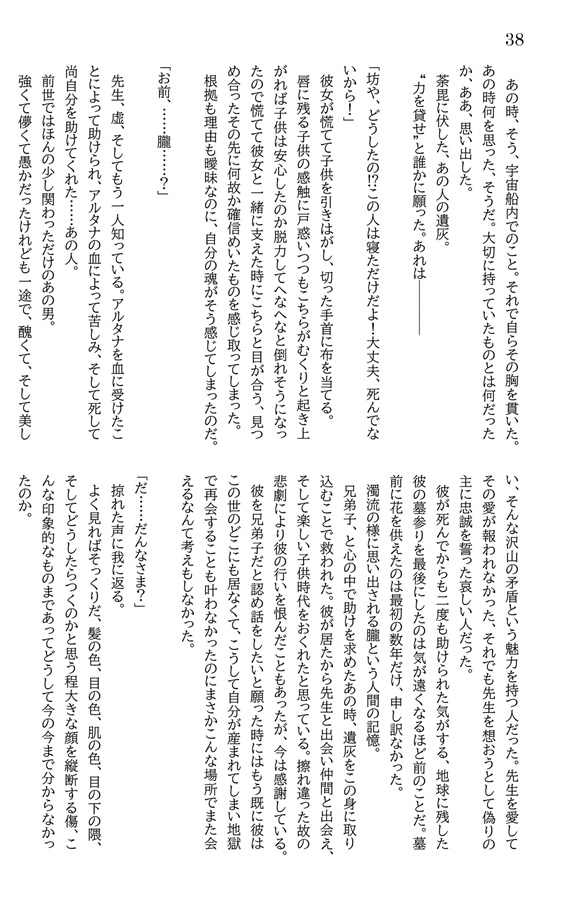 38
あの時、そう、宇宙船内でのこと。それで自らその胸を貫いた。
あの時何を思った、そうだ。大切に持っていたものとは何だった
か、ああ、思い出した。
荼毘に伏した、あの人の遺灰。
“力を貸せ”と誰かに願った。あれは――――
「坊や、どうしたの!?この人は寝ただけだよ！大丈夫、死んでな
いから！」
彼女が慌てて子供を引きはがし、切った手首に布を当てる。
唇に残る子供の感触に戸惑いつつもこちらがむくりと起き上
がれば子供は安心したのか脱力してへなへなと倒れそうになっ
たので慌てて彼女と一緒に支えた時にこちらと目が合う、見つ
め合ったその先に何故か確信めいたものを感じ取ってしまった。
根拠も理由も曖昧なのに、自分の魂がそう感じてしまったのだ。
「お前、……朧……？」
先生、虚、そしてもう一人知っている。アルタナを血に受けたこ
とによって助けられ、アルタナの血によって苦しみ、そして死して
尚自分を助けてくれた……あの人。
前世ではほんの少し関わっただけのあの男。
強くて儚くて愚かだったけれども一途で、醜くて、そして美し
い、そんな沢山の矛盾という魅力を持つ人だった。先生を愛して
その愛が報われなかった、それでも先生を想おうとして偽りの
主に忠誠を誓った哀しい人だった。
彼が死んでからも二度も助けられた気がする、地球に残した
彼の墓参りを最後にしたのは気が遠くなるほど前のことだ。墓
前に花を供えたのは最初の数年だけ、申し訳なかった。
濁流の様に思い出される朧という人間の記憶。
兄弟子、と心の中で助けを求めたあの時、遺灰をこの身に取り
込むことで救われた。彼が居たから先生と出会い仲間と出会え、
そして楽しい子供時代をおくれたと思っている。擦れ違った故の
悲劇により彼の行いを恨んだこともあったが、今は感謝している。
彼を兄弟子だと認め話をしたいと願った時にはもう既に彼は
この世のどこにも居なくて、こうして自分が産まれてしまい地獄
で再会することも叶わなかったのにまさかこんな場所でまた会
えるなんて考えもしなかった。
「だ……だんなさま？」
掠れた声に我に返る。
よく見ればそっくりだ、髪の色、目の色、肌の色、目の下の隈、
そしてどうしたらつくのかと思う程大きな顔を縦断する傷、こ
んな印象的なものまであってどうして今の今まで分からなかっ
たのか。